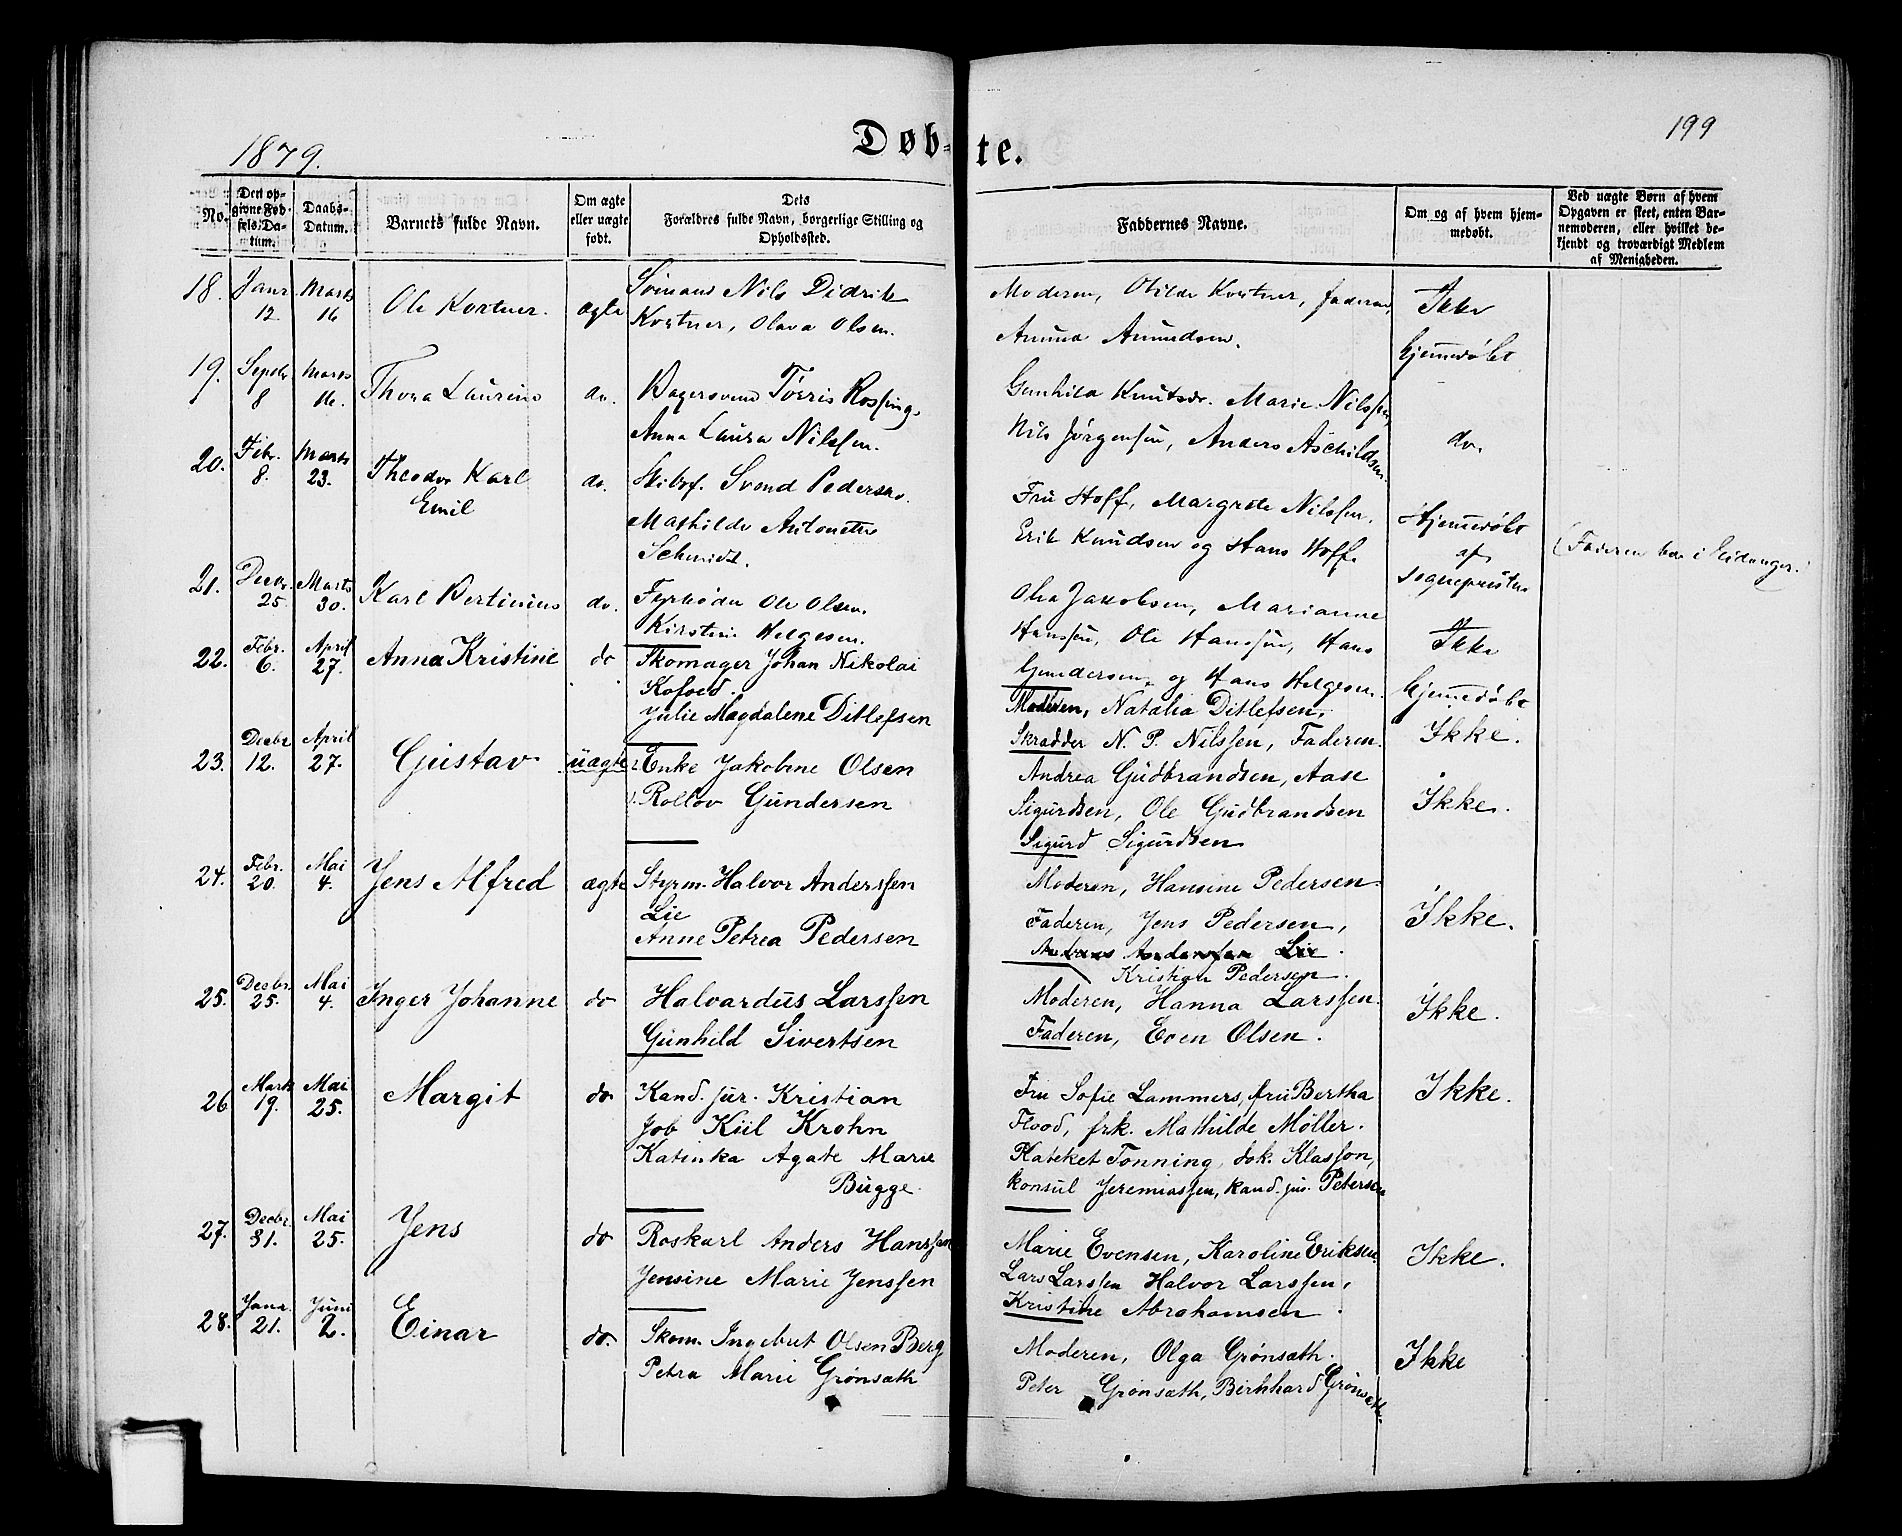 1879.
Døbte.
199
No.
Den opgivne Fødsels-Datum.
Daabs-Datum.
Barnets fulde Navn.
Om ægte eller uægte født.
Dets Forældres fulde Navn, borgerlige Stilling og Opholdssted.
Faddernes Navne.
Om og af hvem hjemmedøbt.
Ved uægte Børn af hvem Opgaven er skeet, enten Barnemoderen, eller hvilket bekjendt og troværdigt Medlem af Menigheden.
18. Janr 12 Marts 16 Ole Kortner. ægte
Sømans Nils Didrik
Kortner, Olava Olsen.
Moderen, Otilde Kortner, faderen,
Amund Amundsen.
Ikke
hjemmedøbt
19. Septbr 8 Marts 16. Thora Laurine do.
Bagersvend Tørris Rossing,
Anna Laura Nilssen.
Gunhild Knutsdr. Marie Nilssen,
Nils Jørgensen, Anders Aschildsen.
do.
20. Febr. 8. Marts 23. Theodor Karl
Emil do.
Skibsf. Svend Pedersen.
Mathilde Antonette
Schmidt.
Fru Hoff, Margrete Nilssen.
Erik Knudsen og Hans Hoff.
Hjemmedøbt
af
sognepresten
(Faderen bor i Eidanger.)
21. Decbr. 25. Marts 30. Karl Bertinius do.
Fyrbøder Ole Olsen.
Kirstine Helgesen.
Olea Jakobsen, Marianne
Hanssen, Ole Hanssen, Hans
Gundersen og Hans Helgesen.
Ikke
hjemmedøbt
22. Febr. 6. April 27. Anna Kristine do
Skomager Johan Nikolai
Kofoed.
Julie Magdalene Ditlefsen
Moderen, Natalia Ditlefsen,
Skrædder N. P. Nilssen, Faderen.
Ikke.
23. Decbr 12. April 27. Gustav uægte
Enke Jakobine Olsen
Rollov Gundersen
Andrea Gudbrandsen, Aase
Sigurdsen, Ole Gudbrandsen
Sigurd Sigurdsen
Ikke.
24. Febr. 20. Mai 4. Jens Alfred ægte
Styrm. Halvor Anderssen
Lie
Anne Petrea Pedersen
Moderen, Hansine Pedersen.
Faderen, Jens Pedersen,
Anderssen Lie.
Kristian Pedersen.
Ikke.
25. Decbr. 25. Mai 4. Inger Johanne do
Halvardus Larssen
Gunhild Sivertsen
Moderen, Hanna Larssen.
Faderen, Even Olsen.
Ikke.
26 Marts 19. Mai 25. Margit do
Kand. jur. Kristian
Job Kiil Krohn
Katinka Agate Marie
Bugge.
Fru Sofie Lammers, fru Bertha
Flood, frk. Mathilde Møller.
Kateket Tonning, dok. Klasson,
konsul Jeremiassen, kand. jur. Petersen
Ikke.
27. Decbr. 31. Mai 25. Jens do
Roskarl Anders Hanssen
Jensine Marie Jenssen
Marie Evensen, Karoline Eriksen.
Lars Larssen Halvor Larssen,
Kristine Abrahamsen.
Ikke.
28. Janr. 21. Juni 2. Einar do.
Skom. Ingebret Olsen Berg
Petra Marie Grønsæth
Moderen, Olga Grønsæth.
Peter Grønsæth, Birkhard Grønsæth.
Ikke